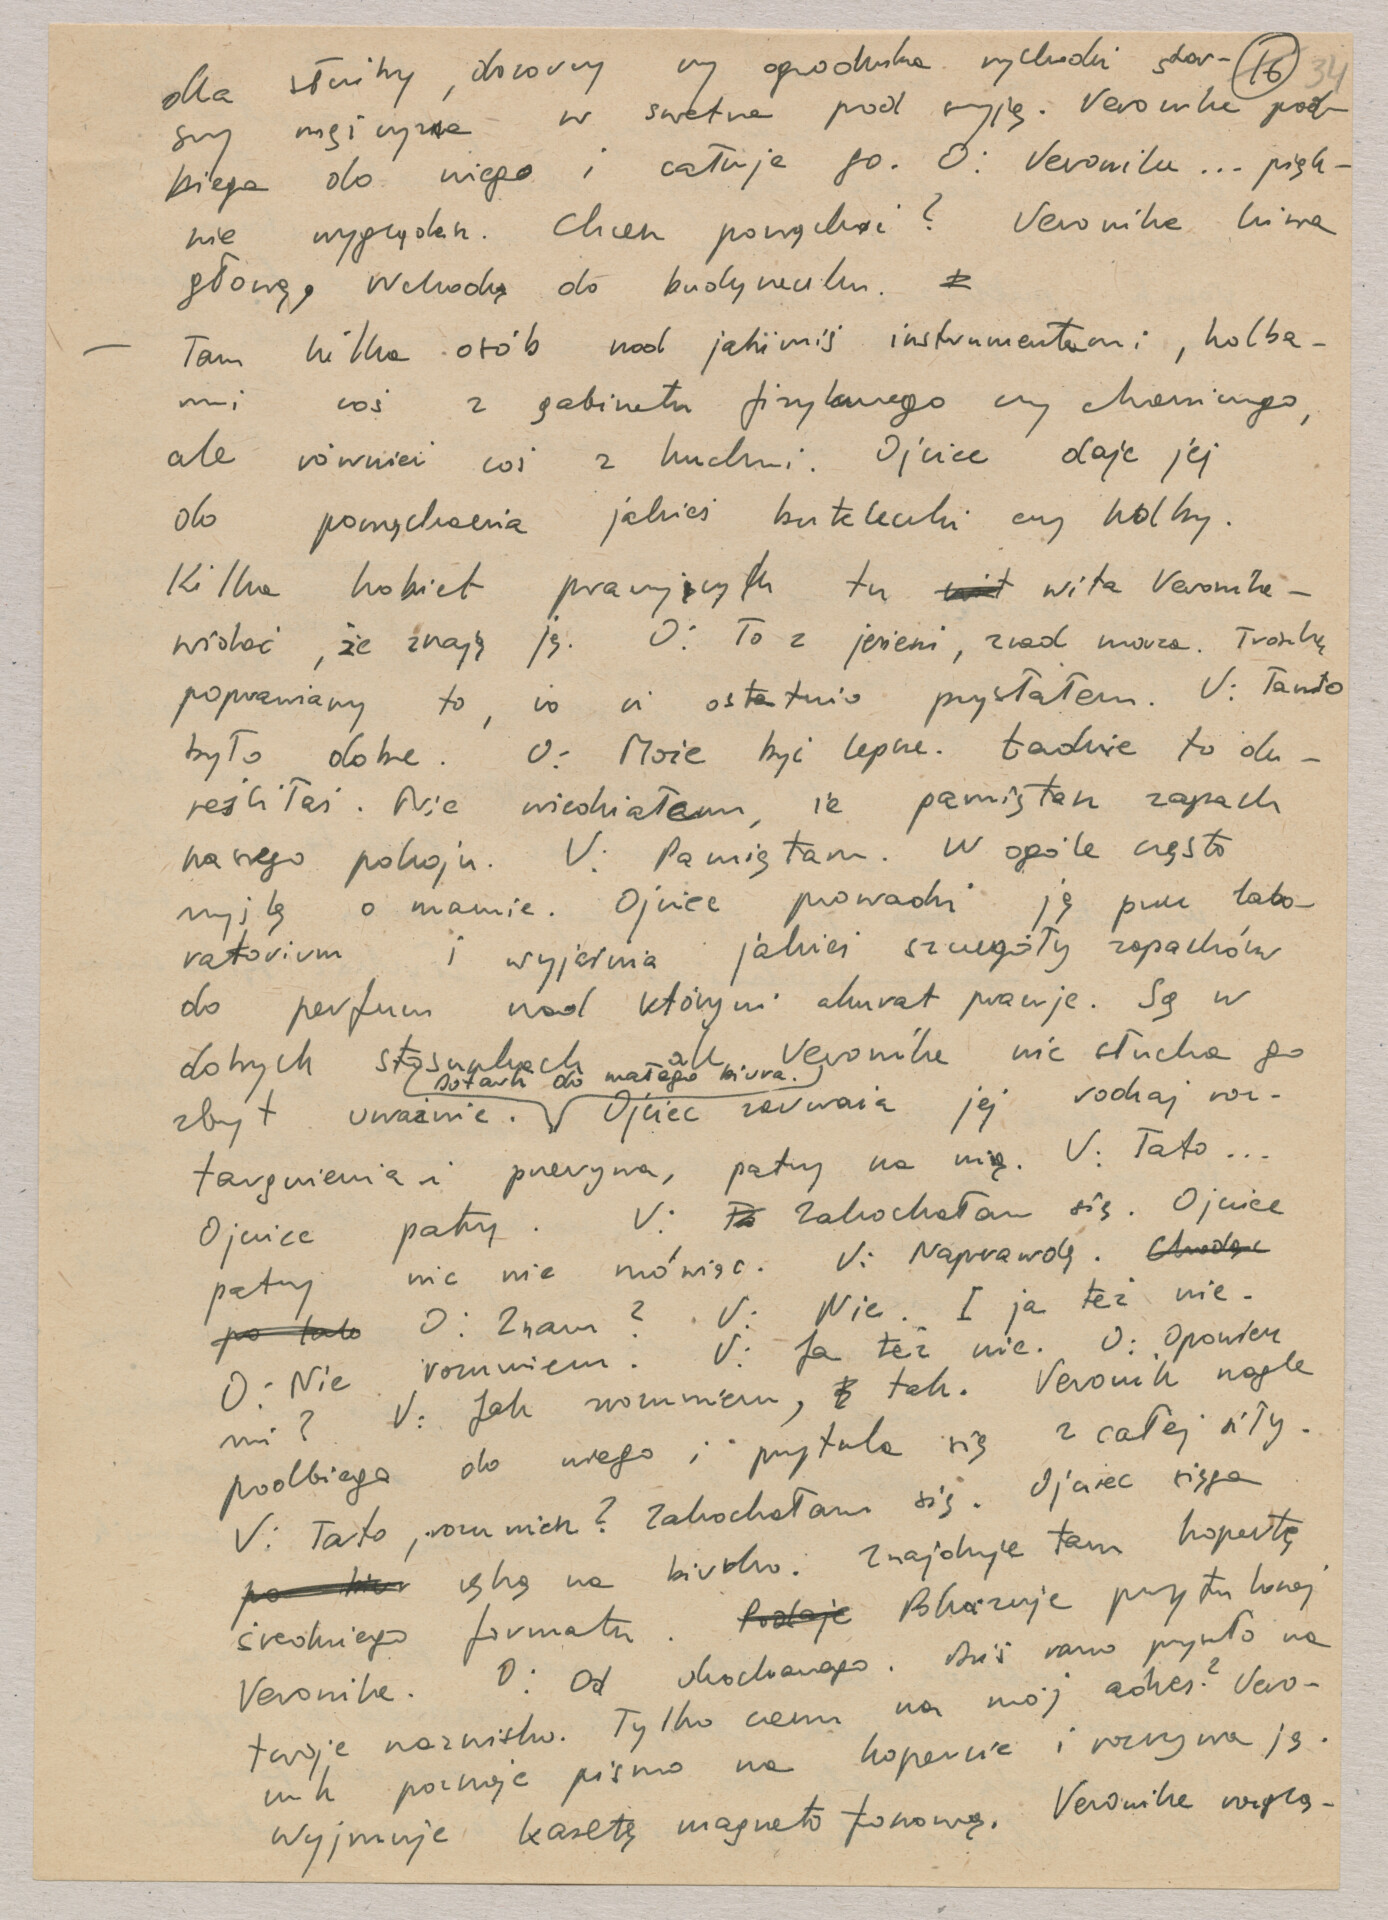 dla służby, dozorcy czy ogrodnika wychodzi star- 16 34
szy mężczyzna w swetrze pod szyję. Veronika pod-
biega do niego i całuje go. O: Veroniku... pięk-
nie wyglądasz. Chcesz powąchać? Veronika kiwa
głową, wchodzą do budyneczku.
— Tam kilka osób nad jakimiś instrumentami, kolba-
mi coś z gabinetu fizycznego czy chemicznego,
ale również coś z kuchni. Ojciec daje jej
do powąchania jakieś buteleczki czy kolby.
Kilka kobiet pracujących tu wita Veronikę -
widać, że znają ją. O: To z jesieni, znad morza. Troszkę
poprawiamy to, co ci ostatnio przysłałem. V: Tamto
było dobre. O: Może być lepsze. Ładnie to ok-
reśliłaś. Nie wiedziałem, że pamiętasz zapach
naszego pokoju. V: Pamiętam. W ogóle często
myślę o mamie. Ojciec prowadzi ją przez labo-
ratorium i wyjaśnia jakieś szczegóły zapachów
do perfum nad którymi akurat pracuje. Są w
dobrych stosunkach ale Veronika nie słucha go
(Dotarli do małego biura.)
zbyt uważnie. Ojciec zauważa jej rodzaj roz-
targnienia i przerywa, patrzy na nią. V: Tato...
Ojciec patrzy. V: Zakochałam się. Ojciec
patrzy nic nie mówiąc. V: Naprawdę. Chodzę
po tato O: Znam? V: Nie. I ja też nie.
O: Nie rozumiem. V: Ja też nie. O: Opowiesz
mi? V: Jak zrozumiem, tak. Veronik nagle
podbiega do niego i przytula się z całej siły.
V: Tato, rozumiesz? Zakochałam się. Ojciec sięga
po biur ręką na biurko. Znajduje tam kopertę
średniego formatu. Podaje Pokazuje przytulonej
Veronike. O: Od ukochanego. Dziś rano przyszło na
twoje nazwisko. Tylko czemu na mój adres? Vero-
nik poznaje pismo na kopercie i rozrywa ją.
Wyjmuje kasetę magnetofonową. Veronika rozglą-